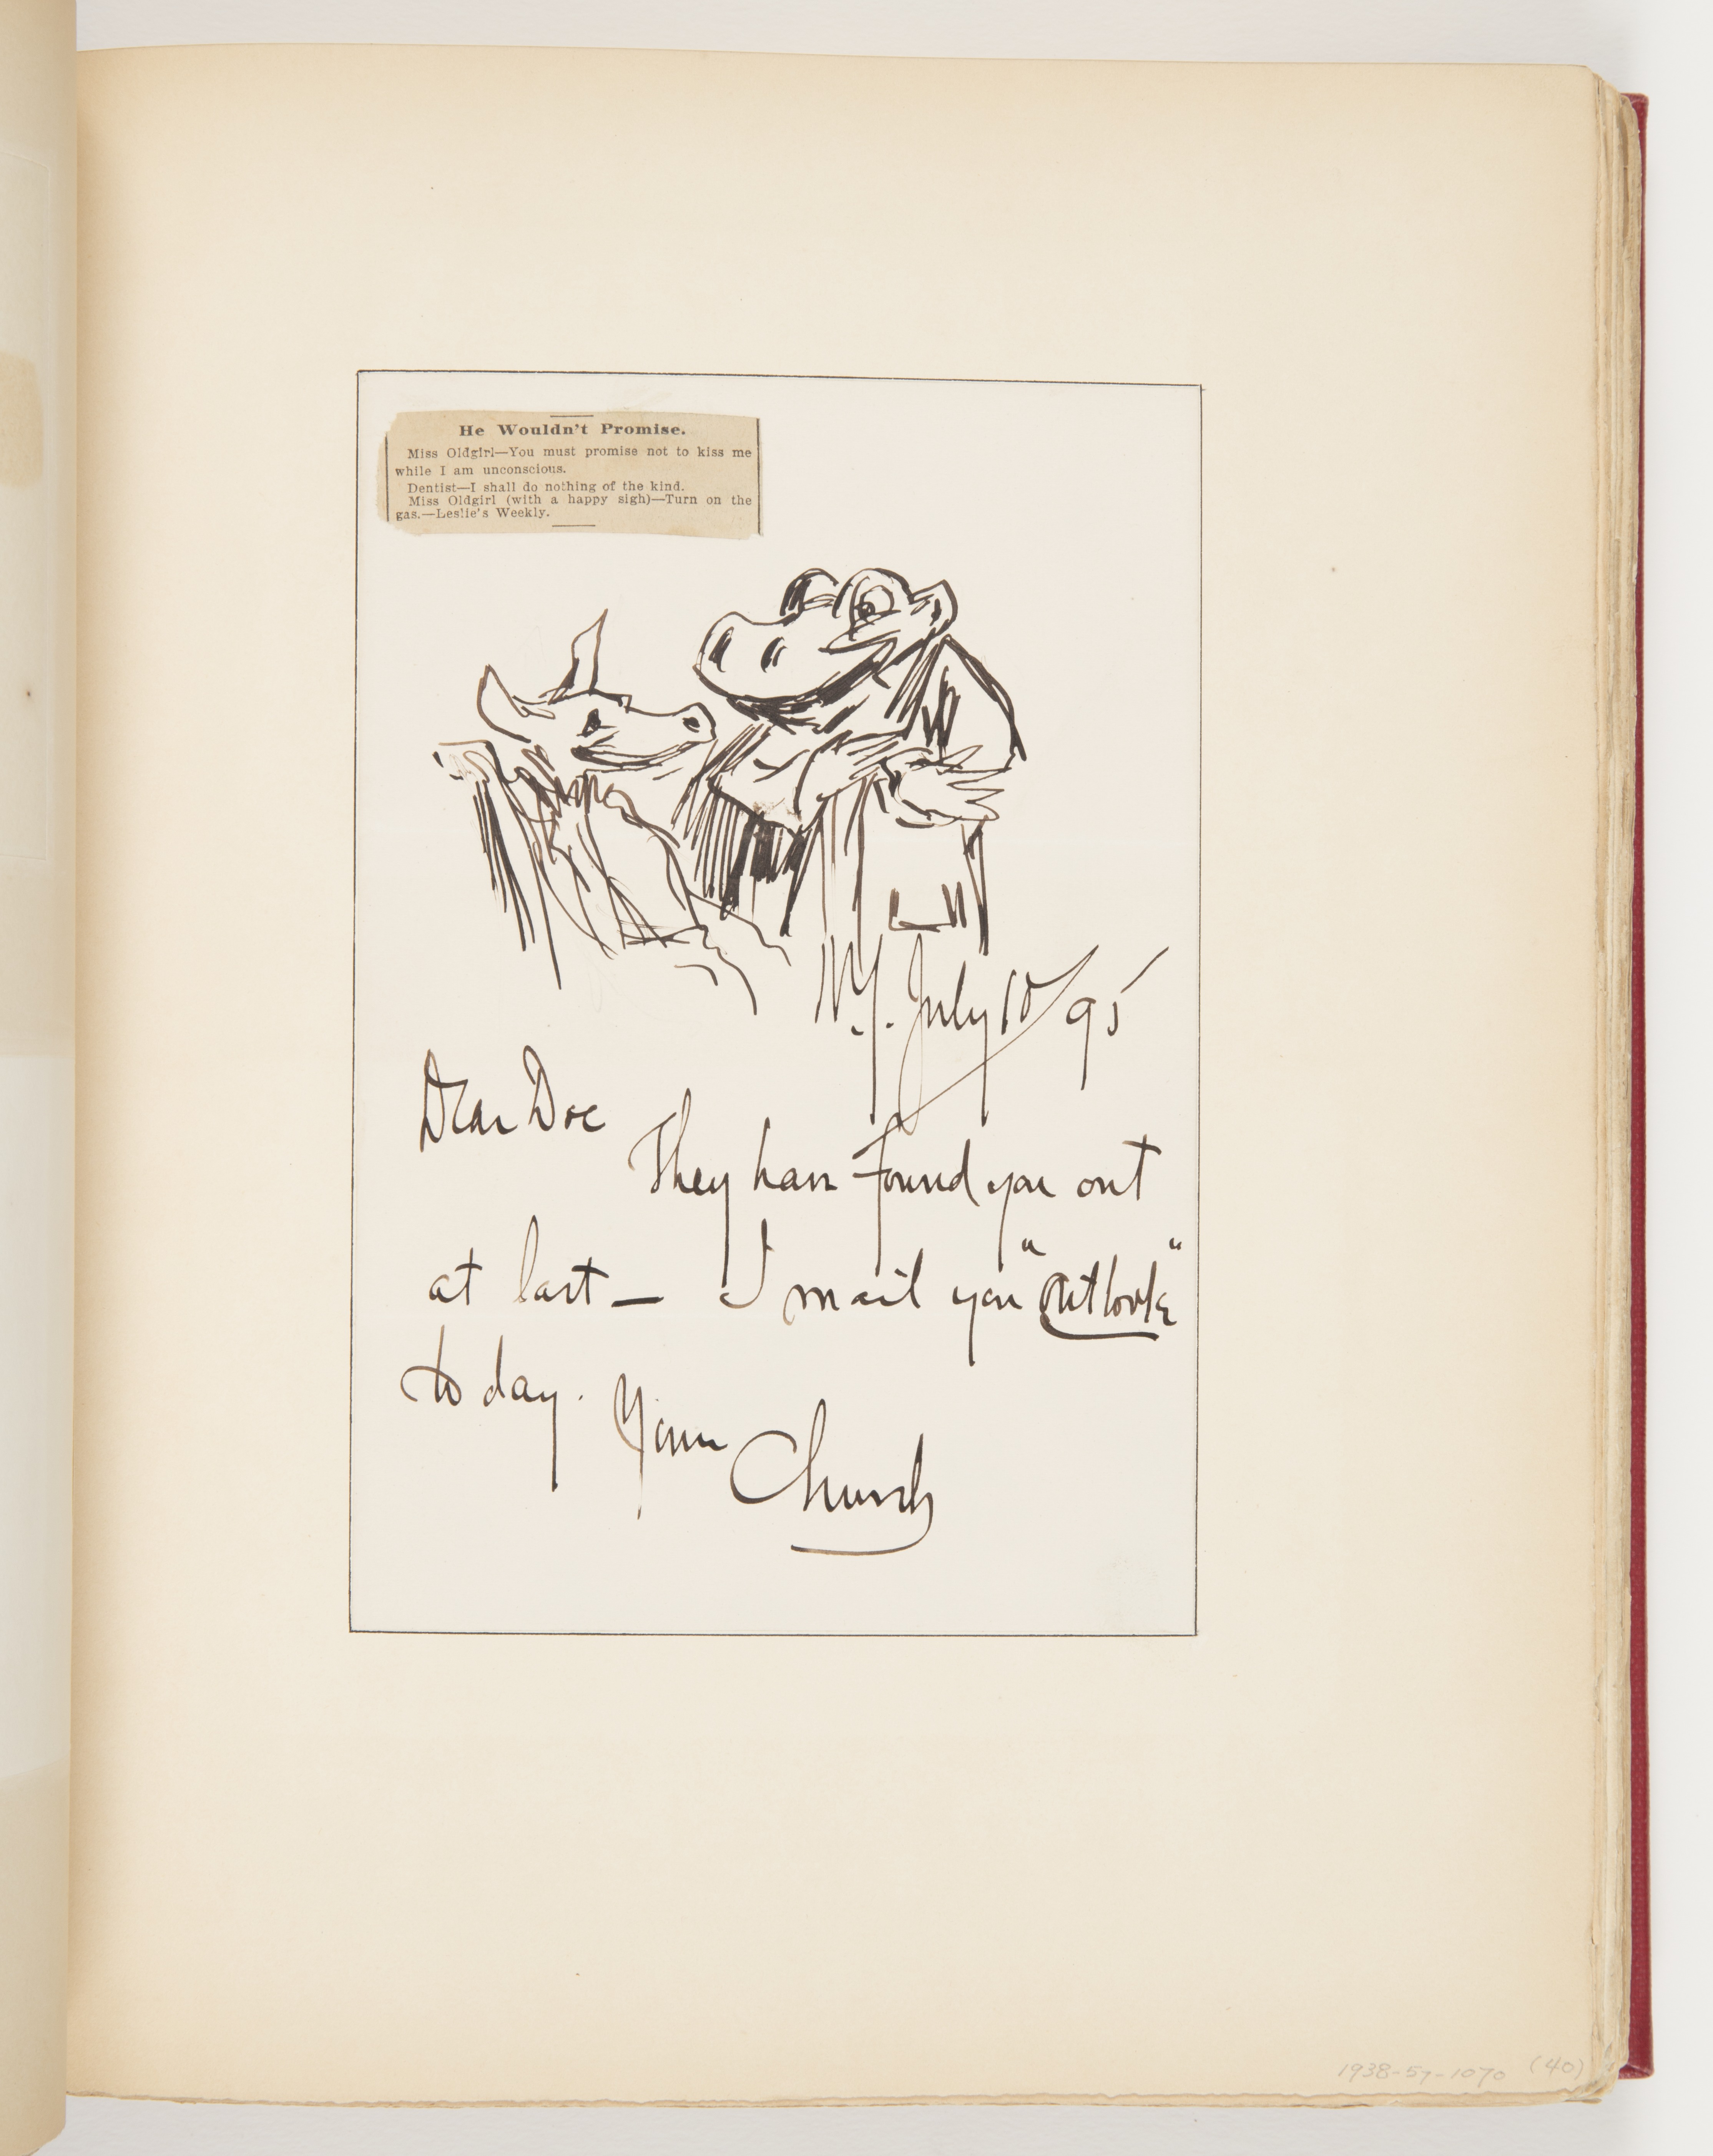 He Wouldn't Promise.
Miss Oldgirl—You must promise not to kiss me
while I am unconscious.
Dentist—I shall do nothing of the kind.
Miss Oldgirl (with a happy sigh)—Turn on the
gas.—Leslie's Weekly.
N.Y. July 10/95
Dear Doc
They have found you out
at last— I mail you "Outlook"
to day. Yours
Church
1938-57-1070 (40)